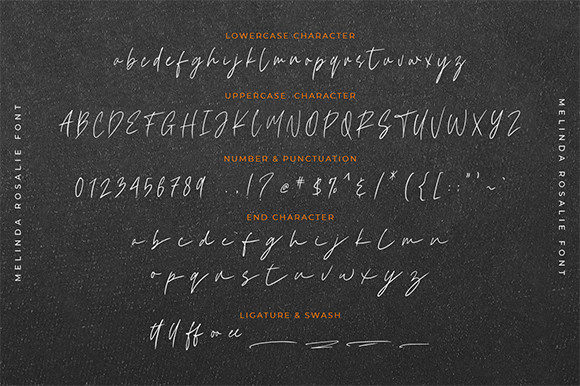 LOWERCASE CHARACTER
abcdefghijklmnopqrstuvwxyz
UPPERCASE CHARACTER
ABCDEFGHIJKLMNOPQRSTUVWXYZ
NUMBER & PUNCTUATION
0123456789 ..!?@#$%^&/*({[::"')~`
END CHARACTER
abcdefghijklmn
opqrstuvwxyz
LIGATURE & SWASH
tt ff or ee
MELINDA ROSALIE FONT
MELINDA ROSALIE FONT